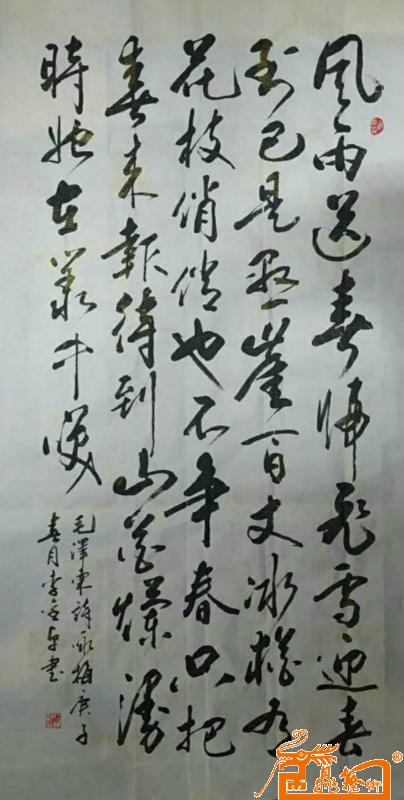 風雨送春歸飛雪迎春
到已是懸崖百丈冰猶有
花枝俏俏也不争春只把
春来報待到山花爛漫
時她在叢中笑
毛澤東詩詠梅庚子
春月李書